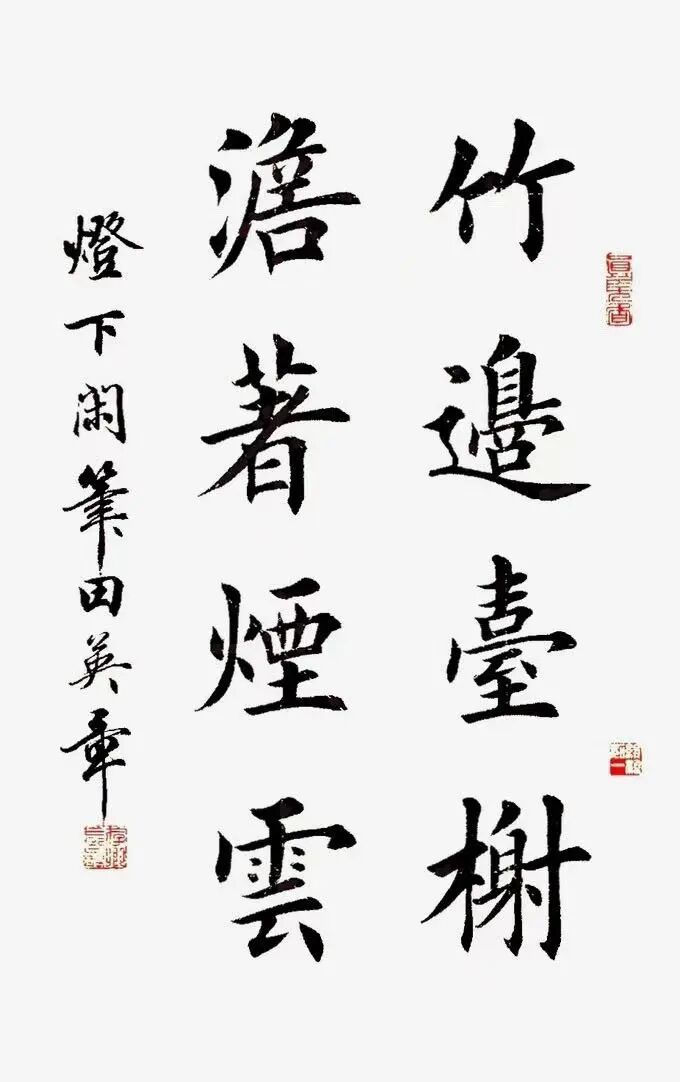 竹邊臺榭
澹著煙雲
燈下閑筆田英章